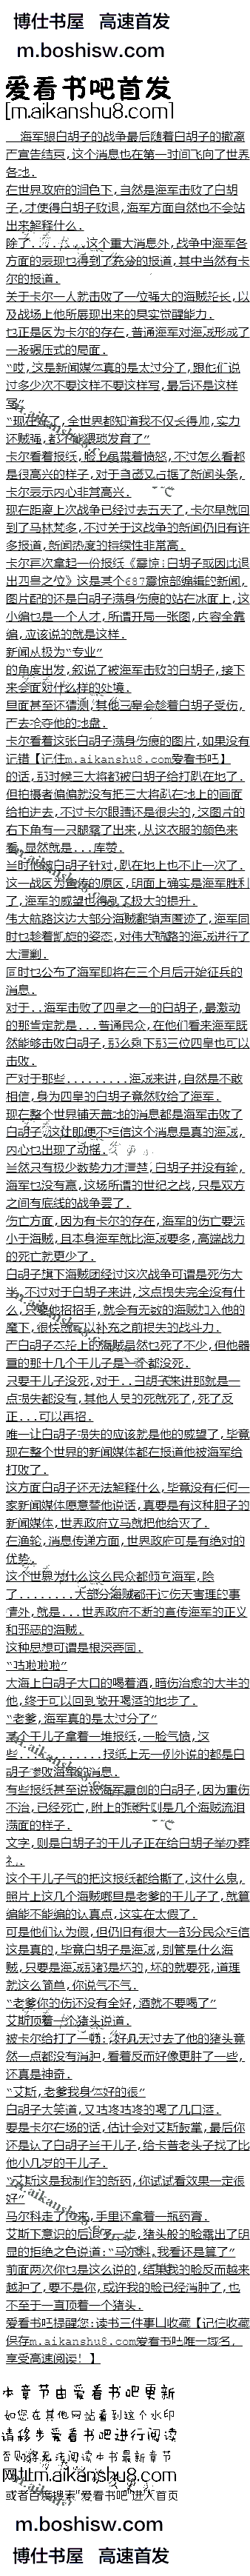 博仕书屋 高速首发
m.boshisw.com
爱看书吧首发
[m.aikanshu8.com]
海军跟白胡子的战争最后随着白胡子的撤离
严宣告结束,这个消息也在第一时间飞向了世界
各地.
在世界政府的润色下,当然是海军击败了白胡
子,才使得白胡子败退,海军方面自然也不会站
出来解释什么.
除了.........这个重大消息外,战争中海军各
方面的表现也得到了充分的报道,其中当然有卡
尔的报道.
关于卡尔一人就击败了一位强大的海贼船长,以
及战场上他所展现出来的是实觉醒能力.
也正是因为卡尔的存在,普通海军对海贼形成了
一股碾压式的局面.
"哎,这是新闻媒体真的是太过分了,跟他们说
过多少次不要这样不要这样写,最后还是这样
写"
"现在好了,全世界都知道我不仅长得帅,实力
还贼强,都不能猥琐发育了"
卡尔看着报纸,脸上虽带着愤怒,不过怎么看都
是很高兴的样子,对于自己又占据了新闻头条,
卡尔表示内心非常高兴.
现在距离上次战争已经过去五天了,卡尔早就回
到了马林梵多,不过关于这战争的新闻仍旧有许
多报道,新闻热度的持续性非常高.
卡尔再次拿起一份报纸《震惊!白胡子或因此退
出四皇之位》这是某个687震惊部编辑的新闻,
图片配的还是白胡子满身伤痕的站在冰面上,这
小编也是一个人才,所谓开局一张图,内容全靠
编,应该说的就是这样.
新闻从极为"专业"
的角度出发,叙说了被海军击败的白胡子,接下
来会面对什么样的处境.
里面甚至还猜测,其他三皇会趁着白胡子受伤,
产去抢夺他的地盘.
卡尔看着这张白胡子满身伤痕的图片,如果没有
记错【记住m.aikanshu8.com爱看书吧】
的话,那时候三大将都被白胡子给打趴在地了.
但拍摄者偏偏就没有把三大将趴在地上的画面
给拍进去,不过卡尔眼睛还是很尖的,这图片的
右下角有一只腿露了出来,从这衣服的颜色来
看,显然就是...库赞.
当时他被白胡子针对,趴在地上也不止一次了.
这一战因为青雉的原因,明面上确实是海军胜利
了,海军的威望也得到了极大的提升.
伟大航路这边大部分海贼都销声匿迹了,海军同
时也趁着凯旋的姿态,对伟大航路的海贼进行了
大清剿.
同时也公布了海军即将在三个月后开始征兵的
消息.
对于..海军击败了四皇之一的白胡子,最激动
的那肯定就是...普通民众,在他们看来海军既
然能够击败白胡子,那么剩下那三位四皇也可以
击败.
严对于那些.........海贼来讲,自然是不敢
相信,身为四皇的白胡子竟然败给了海军.
现在整个世界铺天盖地的消息都是海军击败了
白胡子,这让即便不相信这个消息是真的海贼,
内心也出现了动摇.
当然只有极少数势力才清楚,白胡子并没有输,
海军也没有赢,这场所谓的世纪之战,只是双方
之间有底线的战争罢了.
伤亡方面,因为有卡尔的存在,海军的伤亡要远
小于海贼,且本身海军就比海贼要多,高端战力
的死亡就更少了.
白胡子旗下海贼团经过这次战争可谓是死伤大
半,不过对于白胡子来讲,这点损失完全没有什
么,只要他招招手,就会有无数的海贼加入他的
麾下,很快就可以补充之前损失的战斗力.
严白胡子本船上的海贼虽然也死了不少,但他器
重的那十几个干儿子是一个都没死.
只要干儿子没死,对于..白胡子来讲那就是一
点损失都没有,其他人员的死就死了,死了反
正...可以再招.
唯一让白胡子损失的应该就是他的威望了,毕竟
现在整个世界的新闻媒体都在报道他被海军给
打败了.
这方面白胡子还无法解释什么,毕竟没有任何一
家新闻媒体愿意替他说话,真要是有这种胆子的
新闻媒体,世界政府立马就把他给灭了.
在渔轮,消息传递方面,世界政府可是有绝对的
优势.
这个世界为什么这么民众都倾向海军,除
了.........大部分海贼都干过伤天害理的事
情外,就是...世界政府不断的宣传海军的正义
和邪恶的海贼.
这种思想可谓是根深蒂固.
"咕啦啦啦"
大海上白胡子大口的喝着酒,暗伤治愈的大半的
他,终于可以回到敞开喝酒的地步了.
"老爹,海军真的是太过分了"
某个干儿子拿着一堆报纸,一脸气愤,这
些............报纸上无一例外说的都是白
胡子惨败海军的消息.
有些报纸甚至说被海军重创的白胡子,因为重伤
不治,已经死亡,附上的照片则是几个海贼流泪
满面的样子.
文字,则是白胡子的干儿子正在给白胡子举办葬
礼.
这个干儿子气的把这报纸都给撕了,这什么鬼,
照片上这几个海贼哪里是老爹的干儿子了,就算
编能不能编的认真点,这实在太假了.
可是他们认为假,但仍旧有很大一部分民众相信
这是真的,毕竟白胡子是海贼,别管是什么海
贼,只要是海贼那都是坏的,坏的就要死,道理
就这么简单,你说气不气.
"老爹你的伤还没有全好,酒就不要喝了"
艾斯顶着一个猪头说道.
被卡尔给打了一顿,好几天过去了他的猪头竟
然一点都没有消肿,看着反而好像更胖了一些,
还真是神奇.
"艾斯,老爹我身体好的很"
白胡子大笑道,又咕咚咕咚的喝了几口酒.
要是卡尔在场的话,估计会对艾斯鼓掌,最后你
还是认了白胡子当干儿子,给卡普老头子找了比
他小几岁的干儿子.
"艾斯这是我制作的新药,你试试看效果一定很
好"
马尔科走了过来,手里还拿着一瓶药膏.
艾斯下意识的后退了一步,猪头般的脸露出了明
显的拒绝之色说道:"马尔科,我看还是算了"
前面两次你也是这么说的,结果我的脸反而越来
越肿了,要不是你,或许我的脸已经消肿了,也
不至于一直顶着一个猪头.
爱看书吧提醒您:读书三件事!收藏【记住收藏
保存m.aikanshu8.com爱看书吧唯一域名,
享受高速阅读!】
本章节由爱看书吧更新
如您在其他网站看到这个水印
请移步爱看书吧进行阅读
否则将无法阅读本书最新章节
网址m.aikanshu8.com
或者百度搜索"爱看书吧"进入首页
m.boshisw.com
博仕书屋 高速首发